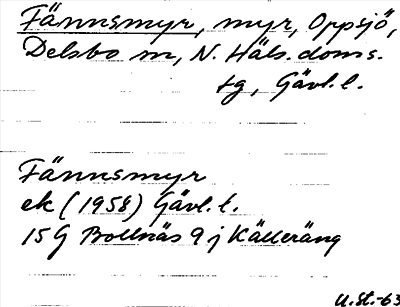 Fännsmyr, myr, Oppsjö,
Delsbo m, N. Häls. doms.
tg, Gävl. l.
Fännsmyr
ek (1958) Gävl. l.
15G Bollnäs 9 j Källeräng
U.St.-63